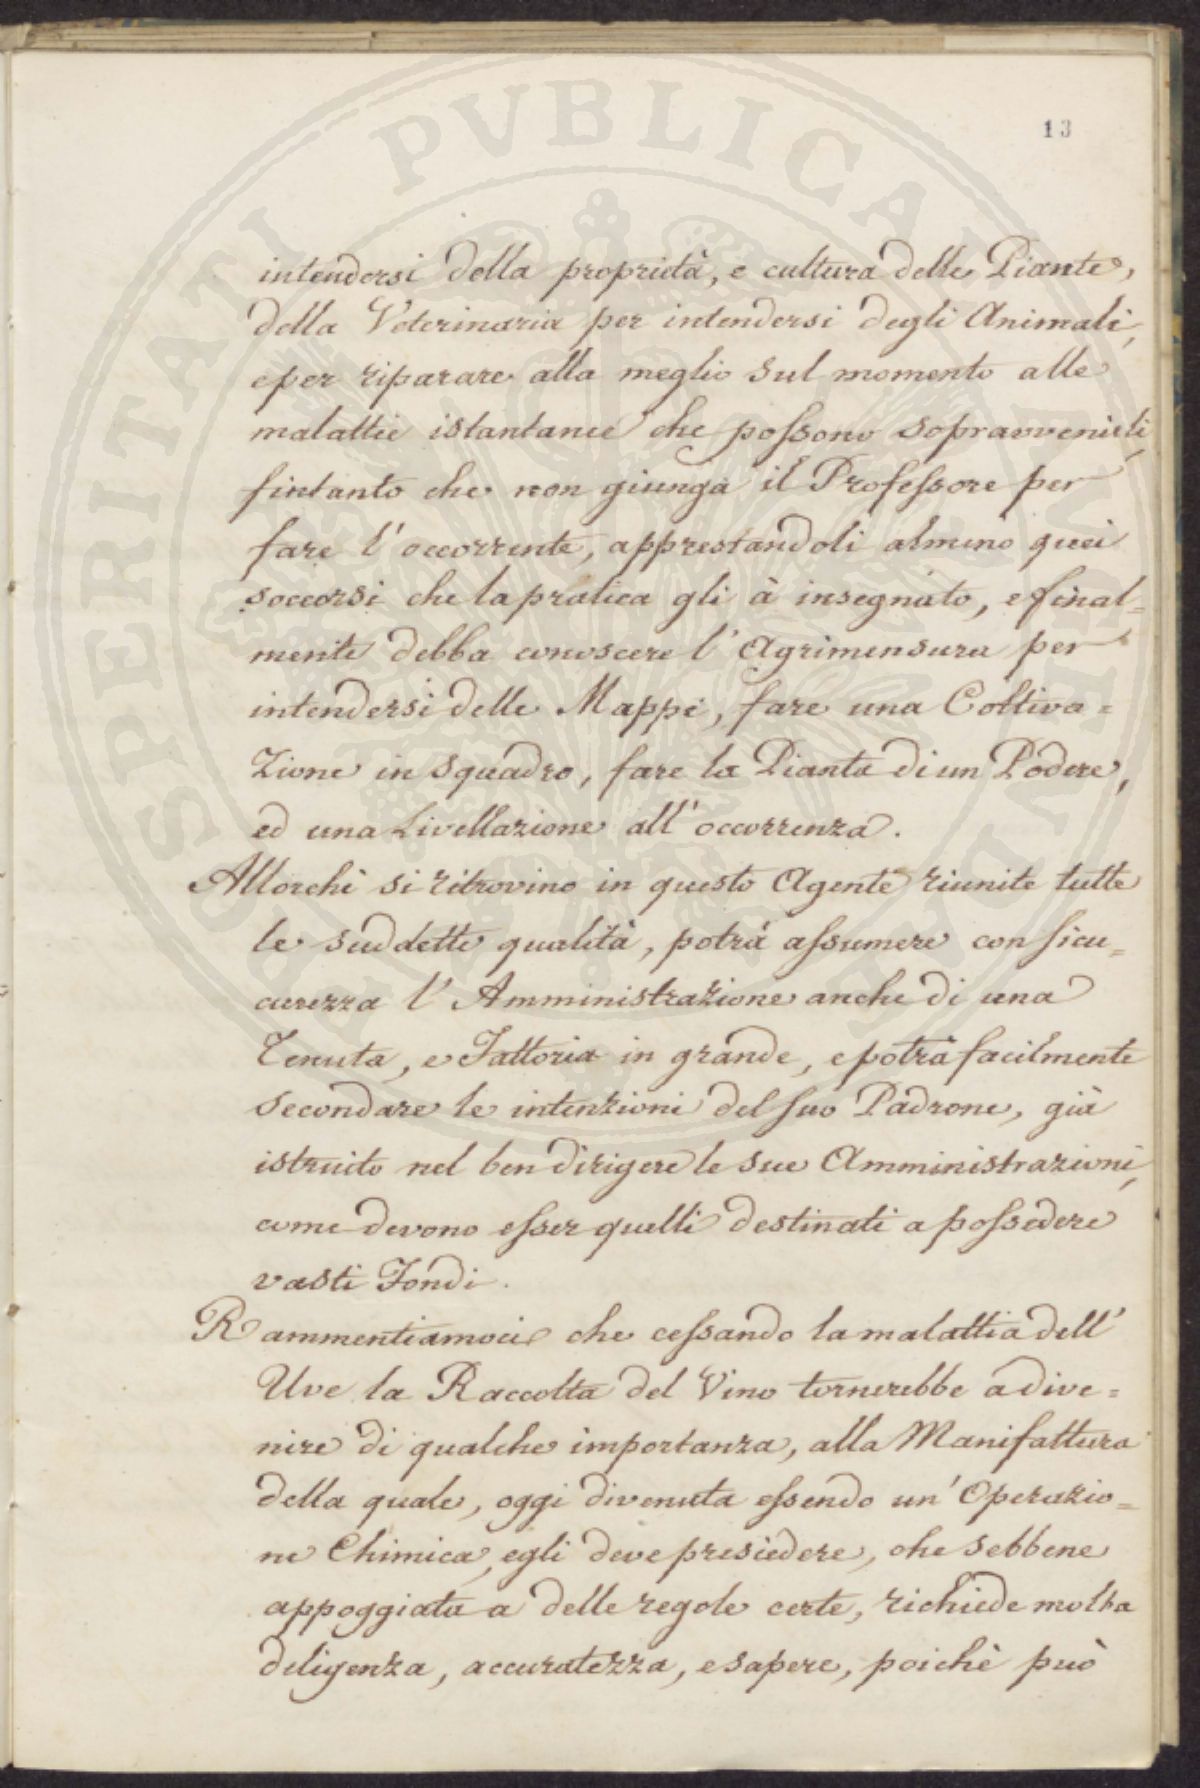 13
intendersi della proprietà, e cultura delle Piante,
della Veterinaria per intendersi degli Animali,
e per riparare alla meglio sul momento alle
malattie istantanee che possono sopravvenirli,
fintanto che non giunga il Professore per
fare l'occorrente, apprestandoli almeno quei
soccorsi che la pratica gli à insegnato, e final=
mente debba conoscere l'Agrimensura per
intendersi delle Mappe, fare una Coltiva=
zione in squadro, fare la Pianta di un Podere,
ed una Livellazione all'occorrenza.
Allorchè si ritrovino in questo Agente riunite tutte
le suddette qualità, potrà assumere con sicu=
curezza l'Amministrazione anche di una
Tenuta, e Fattoria in grande, e potrà facilmente
secondare le intenzioni del suo Padrone, già
istruito nel ben dirigere le sue Amministrazioni,
come devono esser quelli destinati a possedere
vasti Fondi.
Rammentiamoci che cessando la malattia dell'
Uve la Raccolta del Vino tornerebbe a dive=
nire di qualche importanza, alla Manifattura
della quale, oggi divenuta essendo un'Operazio=
ne Chimica, egli deve presiedere, che sebbene
appoggiata a delle regole certe, richiede molta
diligenza, accuratezza, e sapere, poichè può
PROSPERITATI PVBLICAE AVGENDAE